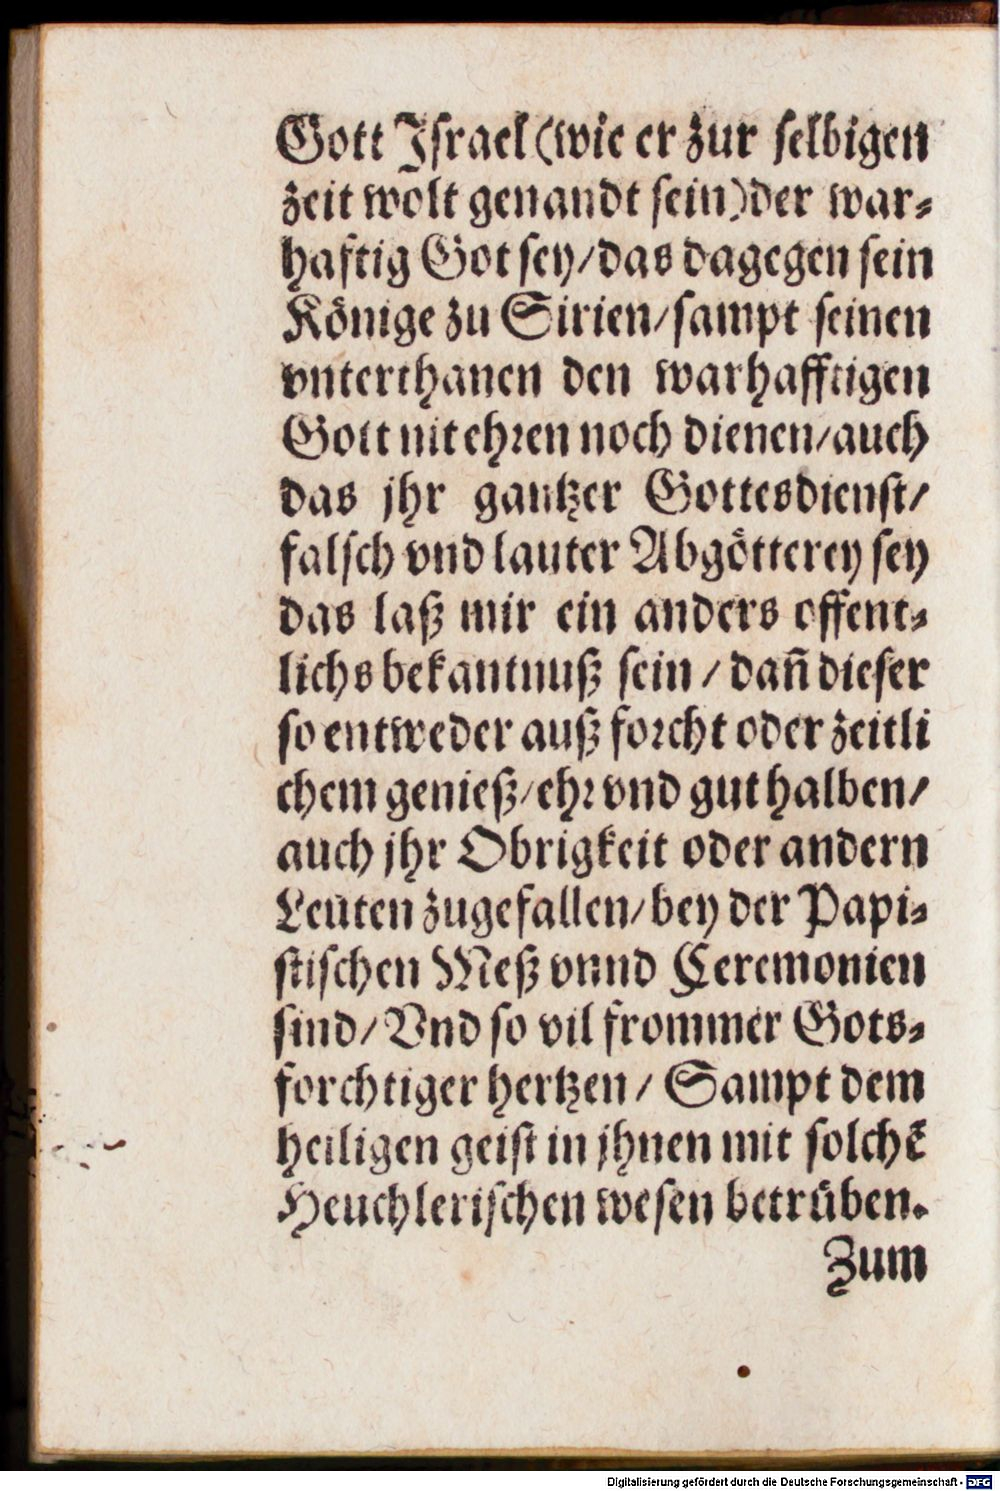 Gott Iſrael (wie er zur ſelbigen
zeit wolt genandt ſein) der war⸗
haftig Got ſey/ das dagegen ſein
Könige zu Sirien/ ſampt ſeinen
vnterthanen den warhafftigen
Gott nit ehꝛen noch dienen/ auch
das jhr gantzer Gottesdienſt/
falſch vnd lauter Abgötterey ſey
das laß mir ein anders offent⸗
lichs bekantnuß ſein / dañ dieſer
ſo entweder auß foꝛcht oder zeitli
chem genieß/ ehꝛ vnd gut halben/
auch jhr Obrigkeit oder andern
Leuten zugefallen/ bey der Papi⸗
ſtiſchen Meß vnnd Ceremonien
ſind/ Vnd ſo vil frommer Gots⸗
forchtiger hertzen/ Sampt dem
heiligen geiſt in jhnen mit ſolchẽ
Heuchleriſchen weſen betrüben.
Zum
Digitalisierung gefördert durch die Deutsche Forschungsgemeinschaft - DFG